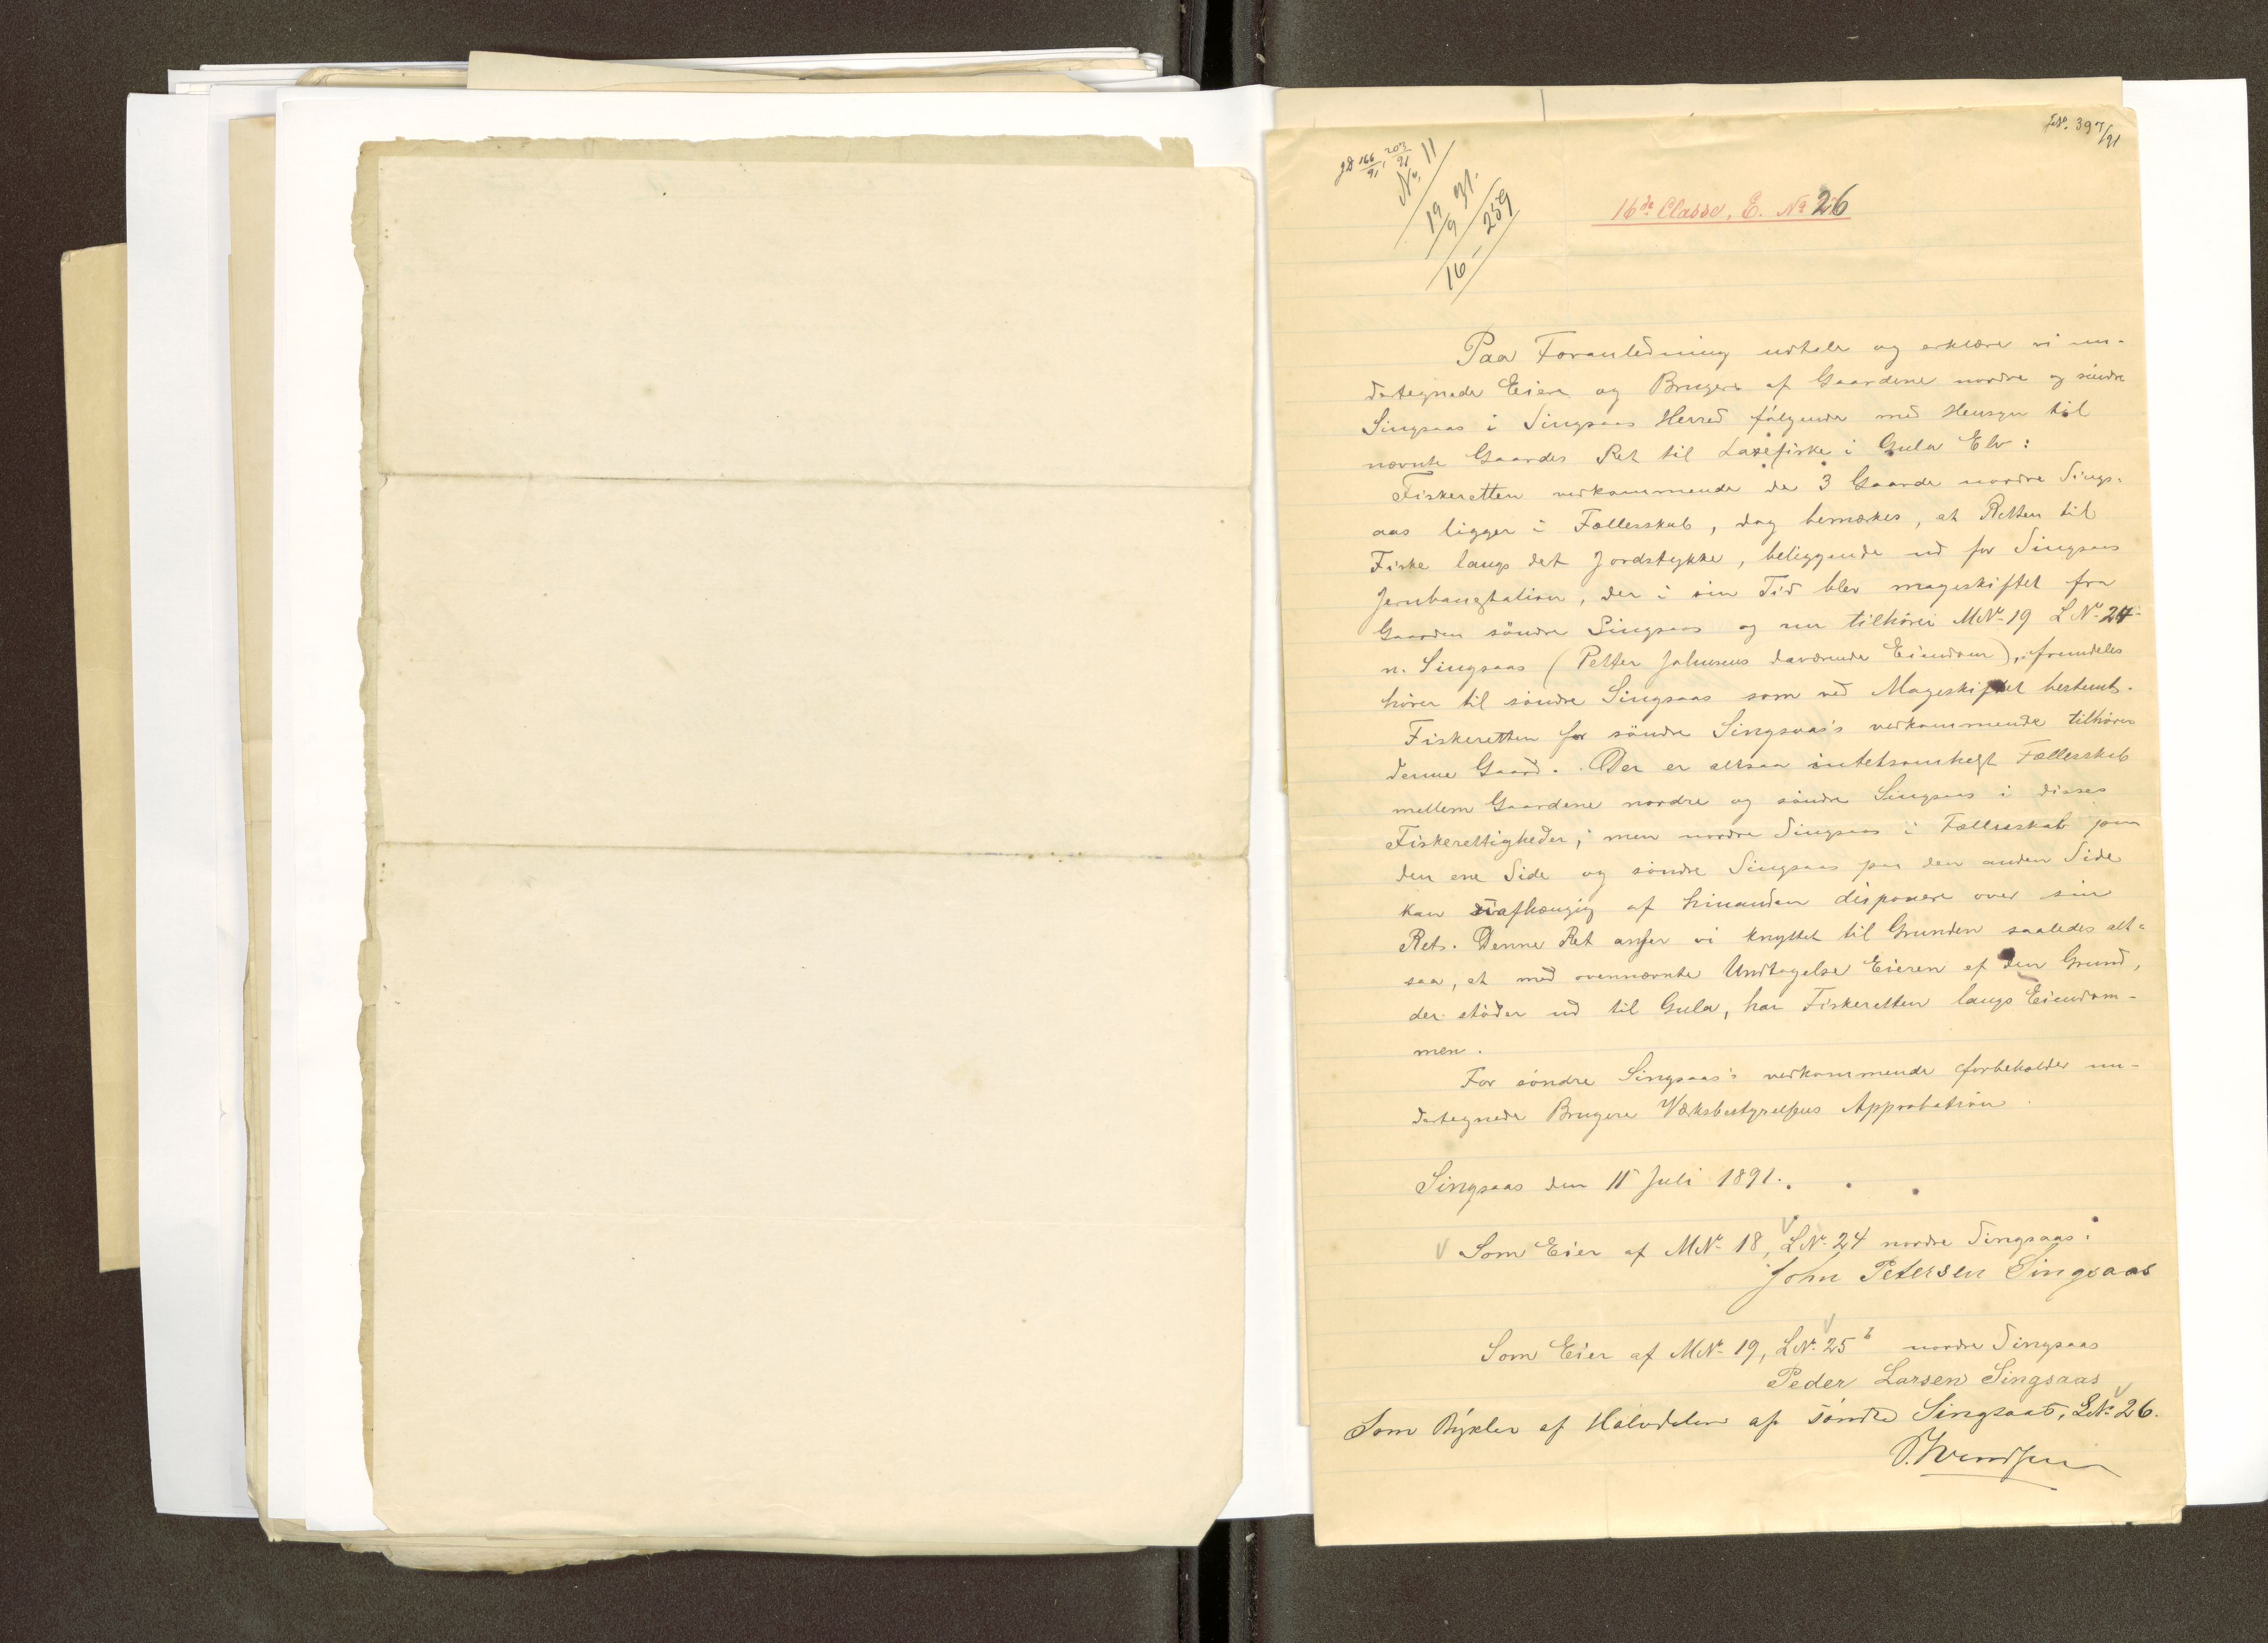 JNo. 397/91
gD 166/91, 203/91
No. 11
19/9 91.
16 - 259
16de Classe, E. No 26
Paa Foranledning udtale og erklære vi un-
dertegnede Eiere og Brugere af Gaardene nordre og søndre
Singsaas i Singsaas Herred følgende med Hensyn til
nævnte Gaardes Ret til Laxefiske i Gula Elv:
Fiskeretten vedkommende de 3 Gaarde nordre Sings-
aas ligger i Fællesskab, dog bemærkes, at Retten til
Fiske langs det Jordstykke, beliggende ud for Singsaas
Jernbanestation, der i sin Tid blev mageskiftet fra
Gaarden søndre Singsaas og nu tilhører MNo 19 LNo 24
n. Singsaas (Petter Johnsens daværende Eiendom), fremdeles
hører til søndre Singsaas som ved Mageskiftet bestemt.
Fiskeretten for søndre Singsaas's vedkommende tilhører
denne Gaard. Der er altsaa intetsomhelst Fællesskab
mellem Gaardene nordre og søndre Singsaas i disses
Fiskerettigheder; men nordre Singsaas i Fællesskab paa
den ene Side og søndre Singsaas paa den anden Side
kan uafhængig af hinanden disponere over sin
Ret. Denne Ret anser vi knyttet til Grunden saaledes alt-
saa, at med ovennævnte Undtagelse Eieren af den Grund,
der støder ud til Gula, har Fiskeretten langs Eiendom-
men.
For søndre Singsaas's vedkommende forbeholder un-
dertegnede Brugere Værksbestyrelsens Approbation.
Singsaas den 11 Juli 1891.
Som Eier af MNo 18, LNo 24 nordre Singsaas:
John Petersen Singsaas
Som Eier af MNo 19, LNo 25 b nordre Singsaas
Peder Larsen Singsaas
Som Byxler af Halvdelen af søndre Singsaas, LNo 26.